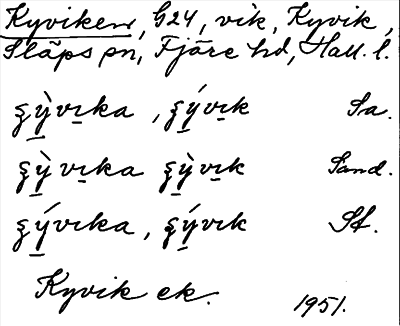 Kyviken, G24, vik, Kyvik,
Släps sn, Fjäre hd, Hall. l.
ʂỳ̠vɪka, ʂý̠vɪk Sa.
ʂỳ̠vɪka ʂỳ̠vɪk Sand.
ʂý̠vɪka, ʂý̠vɪk St.
Kyvik ek. 1951.